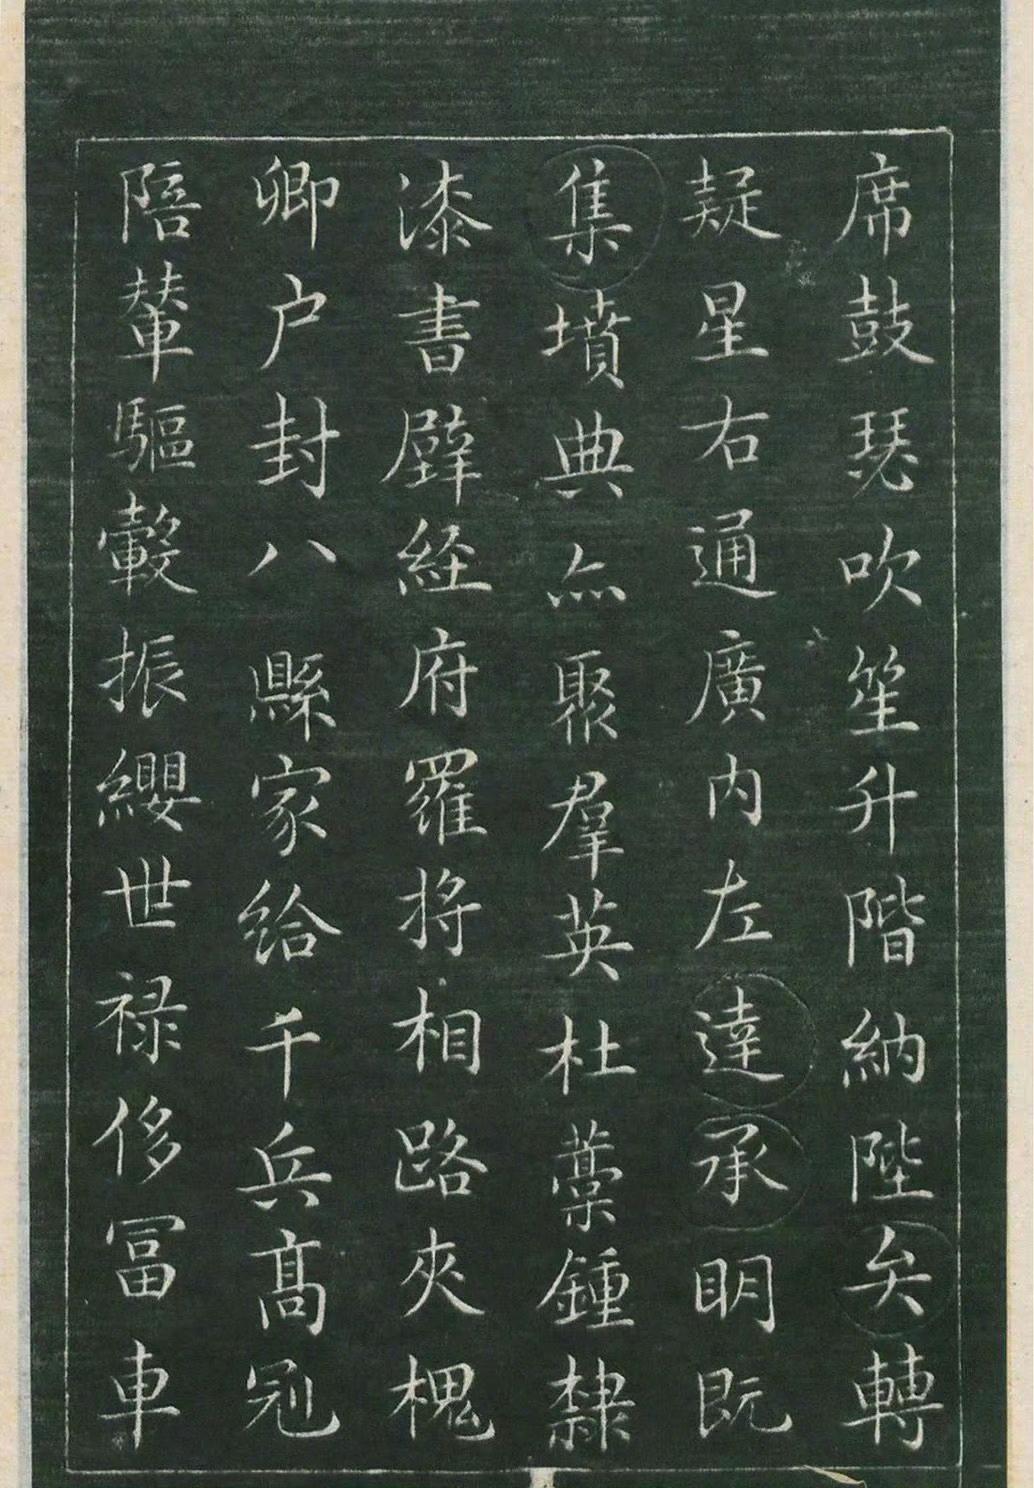 席鼓瑟吹笙升階納陛矣轉
疑星右通廣内左達承明既
集墳典亦聚羣英杜藁鍾隸
漆書壁経府羅将相路夾槐
卿户封八縣家給千兵髙冠
陪輦驅轂振纓世禄侈冨車